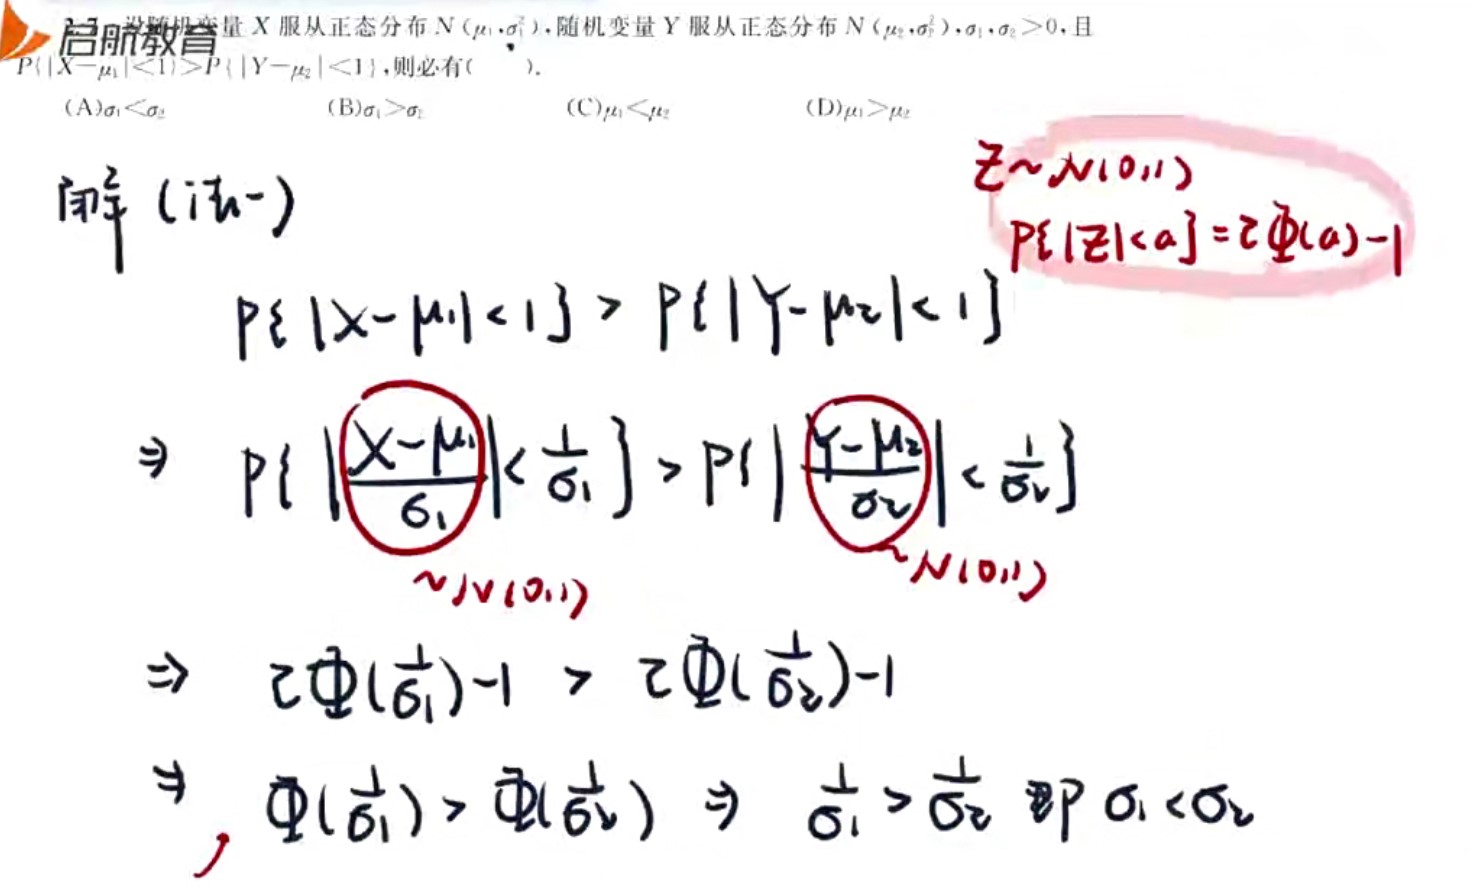 启航教育
量 X 服从正态分布 N(μ₁,σ₁²),随机变量 Y 服从正态分布 N(μ₂,σ₂²),σ₁,σ₂>0,且
P{|X-μ₁|<1}>P{|Y-μ₂|<1},则必有( ).
(A)σ₁<σ₂ (B)σ₁>σ₂ (C)μ₁<μ₂ (D)μ₁>μ₂
Z~N(0,1)
P{|Z|<a}=2Φ(a)-1
解 (法一)
P{|X-μ₁|<1} > P{|Y-μ₂|<1}
⇒ P{|(X-μ₁)/σ₁|<1/σ₁} > P{|(Y-μ₂)/σ₂|<1/σ₂}
~N(0,1) ~N(0,1)
⇒ 2Φ(1/σ₁)-1 > 2Φ(1/σ₂)-1
⇒ Φ(1/σ₁) > Φ(1/σ₂) ⇒ 1/σ₁ > 1/σ₂ 即 σ₁<σ₂